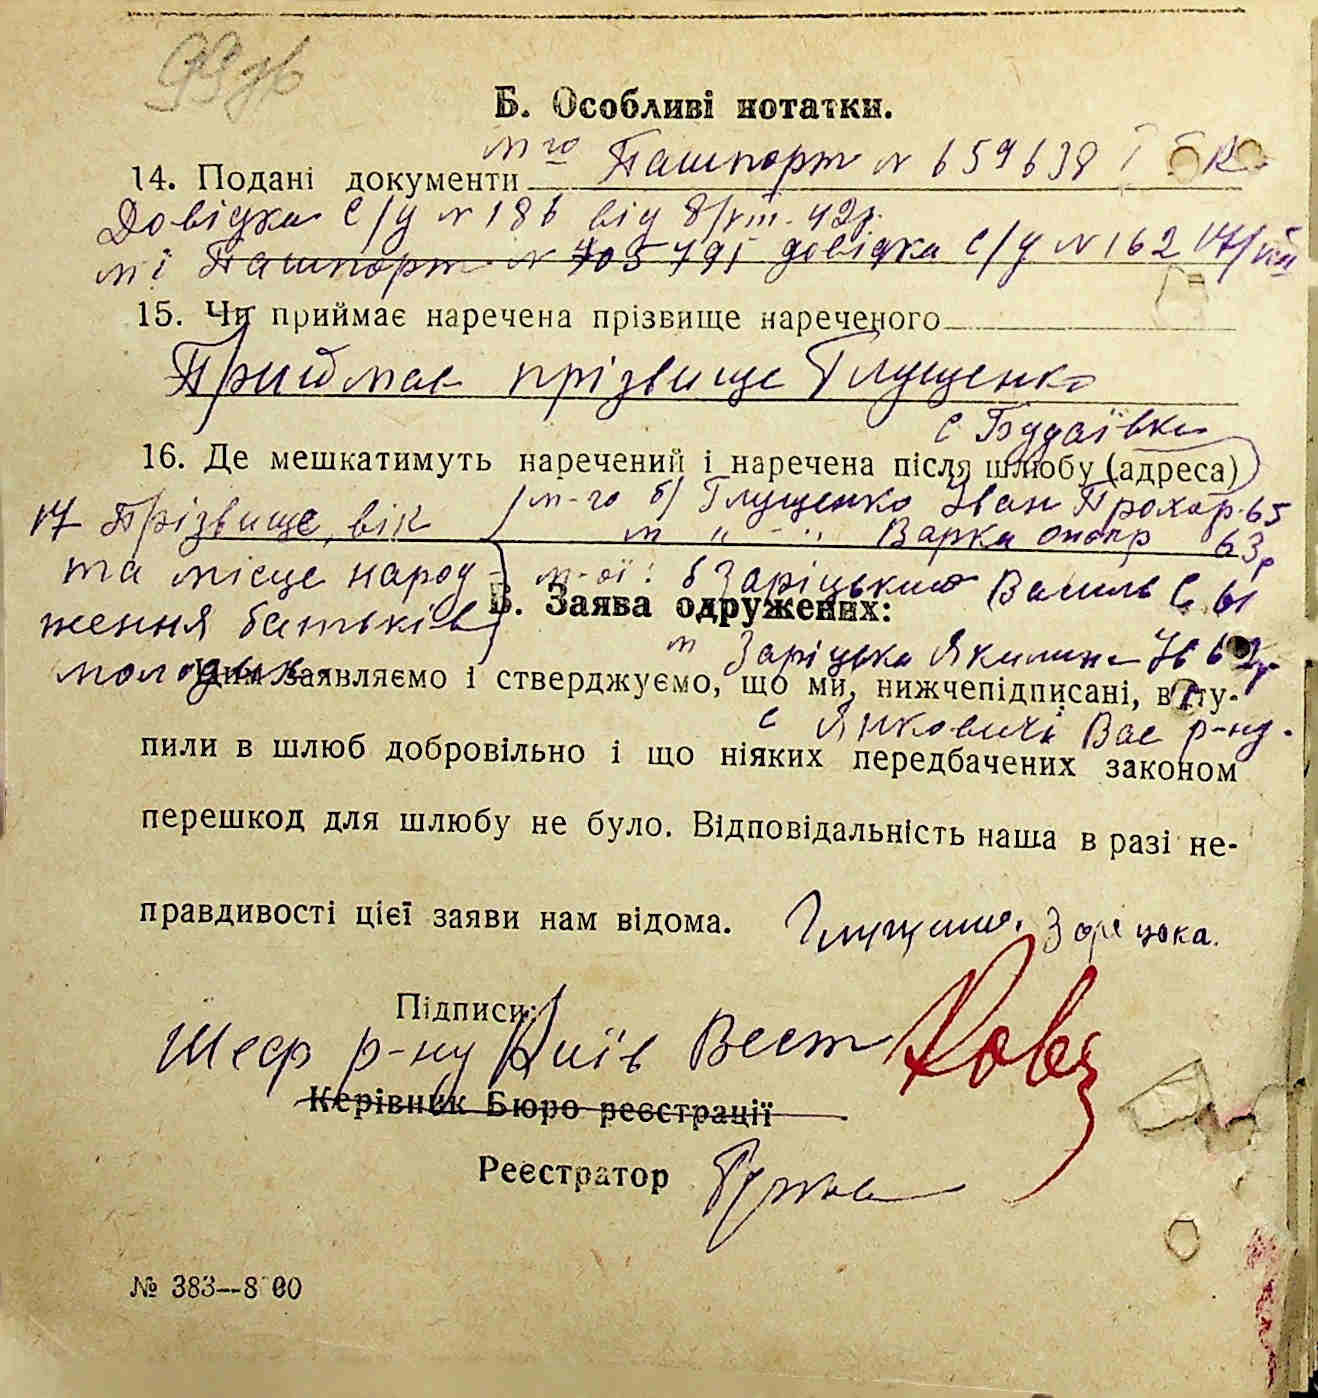 Б. Особливі нотатки.
м го Пашпорт № 659638
14. Подані документи
Довідка С/У № 186 від 8/VIII-42р.
м ї Пашпорт № 705795 довідка С/У № 162 17/VIII
15. Чи приймає наречена прізвище нареченого
Приймає прізвище Глущенко
с Будаївка
16. Де мешкатимуть наречений і наречена після шлюбу (адреса)
17 Прізвище, вік та місце народження батьків молодих
м-го б) Глущенко Іван Прохор. 65
м " - " Варка 63р
м-ої: б Заріцький Василь С. 61
В. Заява одружених:
м Заріцька Якилина 62р
Цим заявляємо і стверджуємо, що ми, нижчепідписані, всту-
с Янковичі Вас р-ну.
пили в шлюб добровільно і що ніяких передбачених законом
перешкод для шлюбу не було. Відповідальність наша в разі не-
правдивості цієї заяви нам відома. Заріцька.
Підписи:
Шеф р-ну Київ Вест
Керівник Бюро реєстрації
Реєстратор
№ 383--8 00